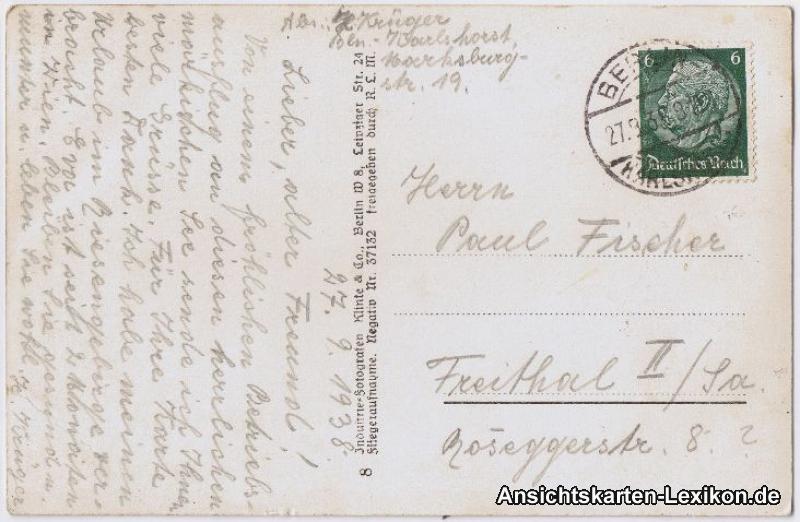 Abs.: H. Krüger
Bln.-Karlshorst,
Marksburg-
str. 19.
27.9.1938
Lieber, alter Freund!
Von einem fröhlichen Betriebs-
ausflug an diesen herrlichen
märkischen See sende ich Ihnen
viele Grüsse. Für Ihre Karte
besten Dank. Ich habe meinen
Urlaub im Riesengebirge ver-
bracht. ist seit 2 Monaten
in Wien. Bleiben Sie gesund u.
munter u. leben Sie wohl H. Krüger
8 Industrie-Fotografen Klinke & Co., Berlin W 8, Leipziger Str. 24
Fliegeraufnahme. Negativ Nr. 37132 freigegeben durch R. L. M.
6 6
Deutsches Reich
BERLIN
27.9.38
KARLSH
Herrn
Paul Fischer
Freithal II/Sa.
Roseggerstr. 8. ?
Ansichtskarten-Lexikon.de